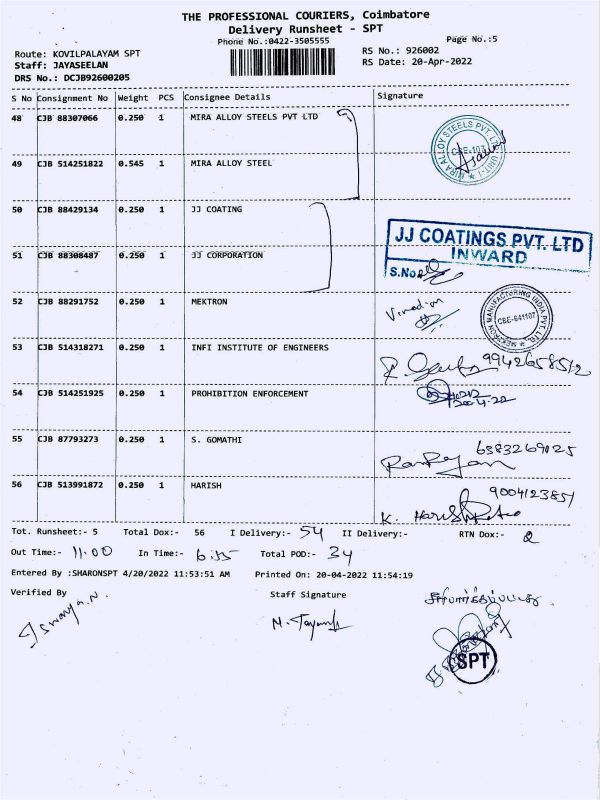 THE PROFESSIONAL COURIERS, Coimbatore
Delivery Runsheet - SPT
Phone No.:0422-3505555
Page No.:5
Route: KOVILPALAYAM SPT
RS No.: 926002
Staff: JAYASEELAN
RS Date: 20-Apr-2022
DRS No.: DCJB92600205
S No Consignment No Weight PCS Consignee Details Signature
48 CJB 88307066 0.250 1 MIRA ALLOY STEELS PVT LTD
MIRA ALLOY STEELS PVT. LTD UNIT-I
CBE-107
49 CJB 514251822 0.545 1 MIRA ALLOY STEEL
50 CJB 88429134 0.250 1 JJ COATING
JJ COATINGS PVT. LTD
INWARD
S.No
51 CJB 88308487 0.250 1 JJ CORPORATION
52 CJB 88291752 0.250 1 MEKTRON
MEKTRON MANUFACTURING INDIA PVT. LTD.
CBE-641107
53 CJB 514318271 0.250 1 INFI INSTITUTE OF ENGINEERS
9942658512
54 CJB 514251925 0.250 1 PROHIBITION ENFORCEMENT
55 CJB 87793273 0.250 1 S. GOMATHI
6383269125
56 CJB 513991872 0.250 1 HARISH
9004123851
Tot. Runsheet:- 5 Total Dox:- 56 I Delivery:- 54 II Delivery:- RTN Dox:- 2
Out Time:- 11:00 In Time:- 6:35 Total POD:- 34
Entered By :SHARONSPT 4/20/2022 11:53:51 AM Printed On: 20-04-2022 11:54:19
Verified By Staff Signature
SPT